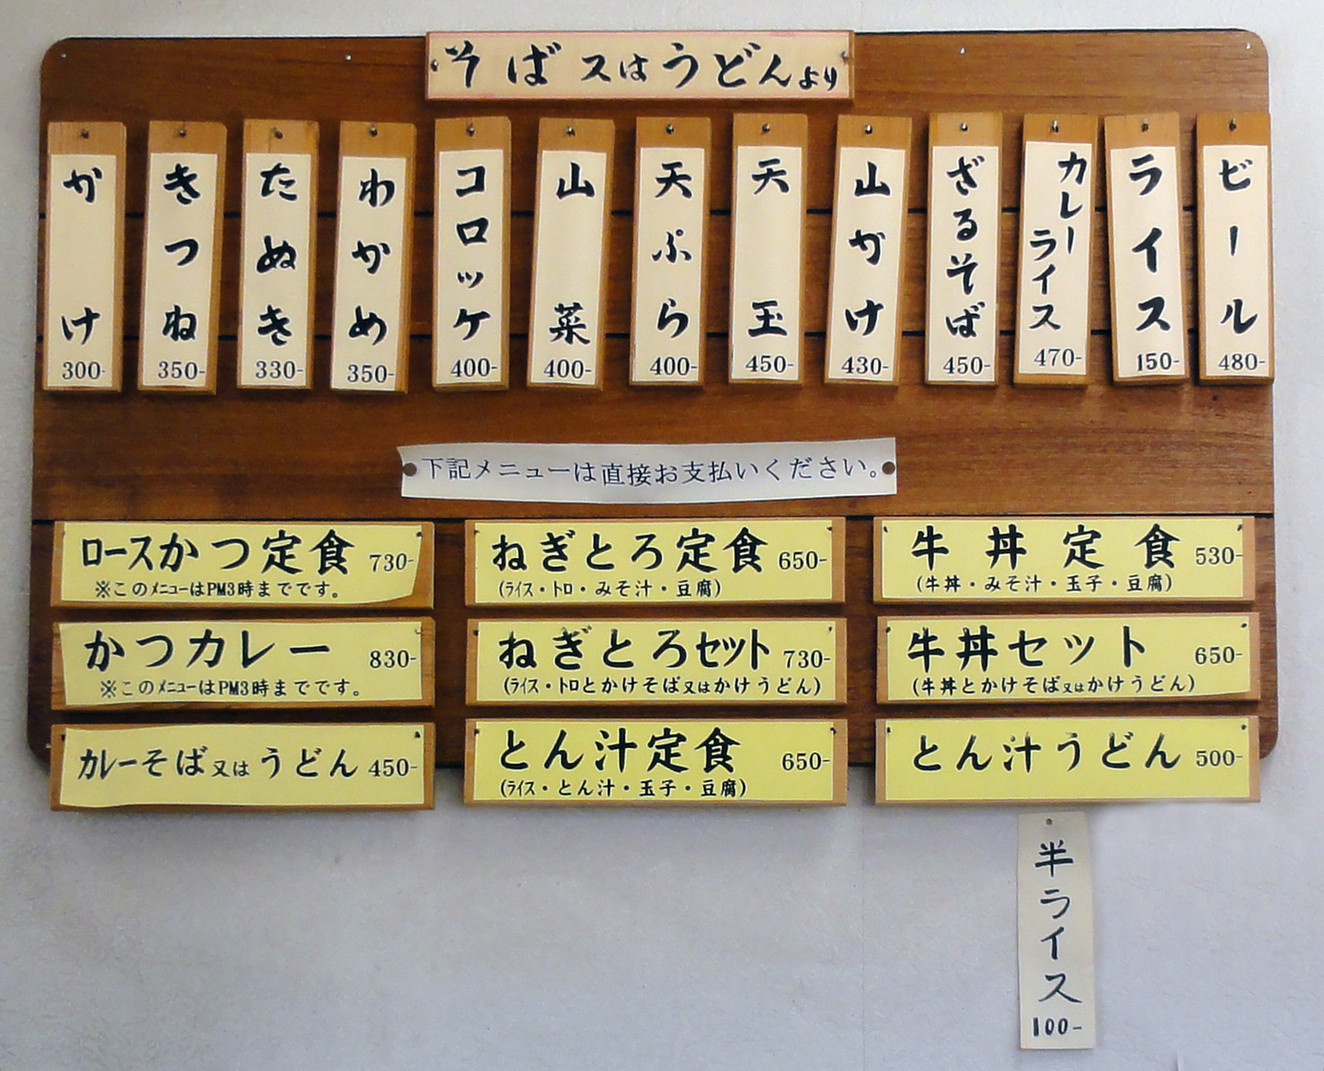 そば又はうどんより
かけ
300-
きつね
350-
たぬき
330-
わかめ
350-
コロッケ
400-
山菜
400-
天ぷら
400-
天玉
450-
山かけ
430-
ざるそば
450-
カレー
ライス
470-
ライス
150-
ビール
480-
下記メニューは直接お支払いください。
ロースかつ定食 730-
※このメニューはPM3時までです。
かつカレー 830-
※このメニューはPM3時までです。
カレーそば又はうどん 450-
ねぎとろ定食 650-
(ライス・トロ・みそ汁・豆腐)
ねぎとろセット 730-
(ライス・トロとかけそば又はかけうどん)
とん汁定食 650-
(ライス・とん汁・玉子・豆腐)
牛丼定食 530-
(牛丼・みそ汁・玉子・豆腐)
牛丼セット 650-
(牛丼とかけそば又はかけうどん)
とん汁うどん 500-
半ライス
100-